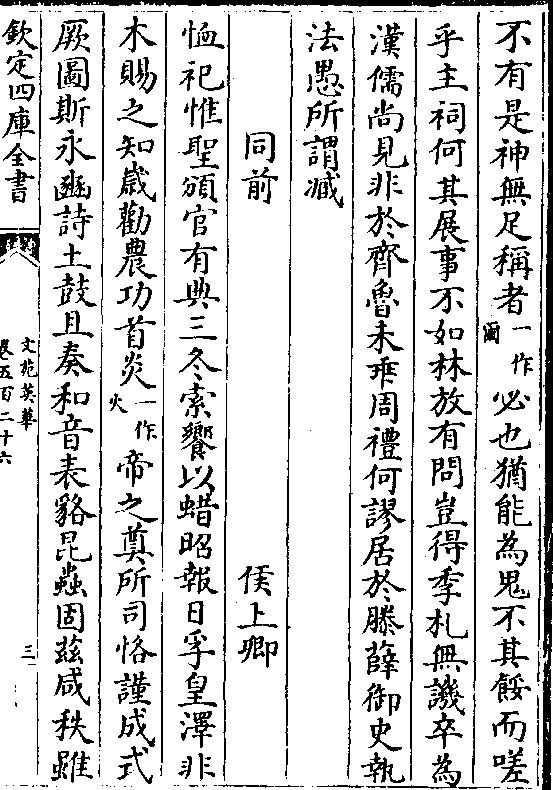 不有是神無足稱者一作闕必也猶能為鬼不其餒而嗟
乎主祠何其展事不如林放有問豈得季札無譏卒為
漢儒尚見非於齊魯未乖周禮何謬居於滕薛御史執
法愚所謂臧
同前 侯上卿
恤祀惟聖頒官有典三冬索饗以蜡昭報日孚皇澤非
木賜之知歲勸農功首炎一作火帝之奠所司恪謹成式
厥圖斯永豳詩土鼓且奏和音表貉昆蟲固茲咸秩雖
欽定四庫全書
文苑英華
卷五百二十六
三